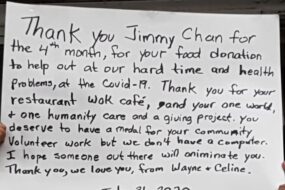 Thank you Jimmy Chan for
the 4th month, for your food donation
to help out at our hard time and health
Problems, at the Covid-19. Thank you for your
restaurant wok café, and your one world,
+ one humanity care and a giving project. you
deserve to have a medal for your community
Volunteer work but we don't have a computer.
I hope someone out there will oniminate you.
Thank you, we love you, from Wayne + Celine.